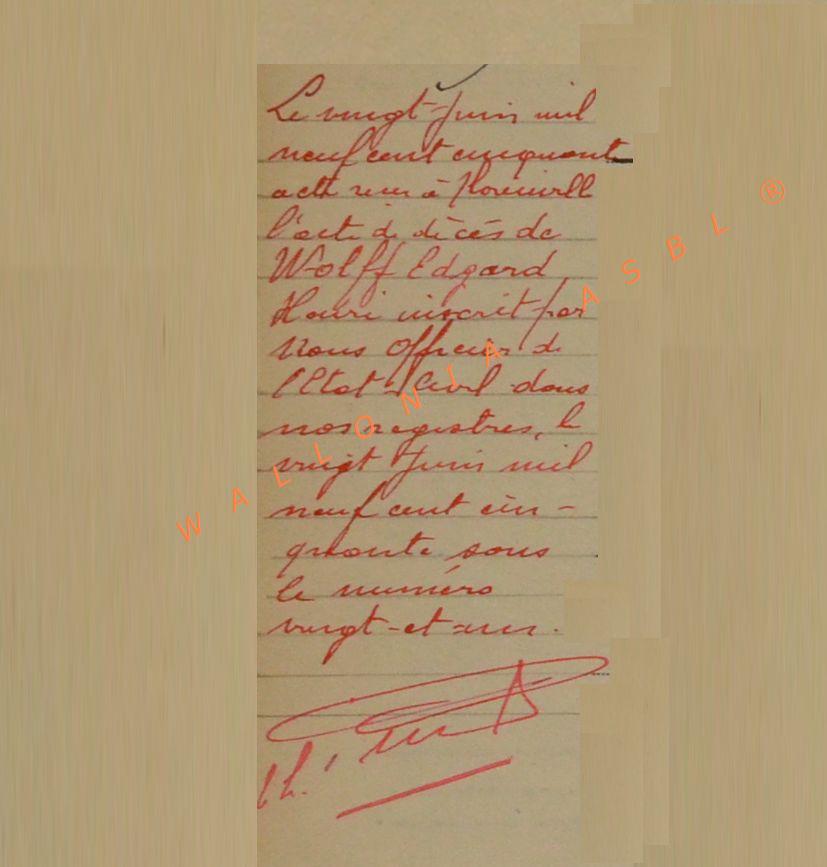 Le vingt-Juin mil
neuf cent cinquante
acte reçu à
l'acte de décès de
Wolff Edgard
Henri inscrit par
Nous Officier de
l'Etat-Civil dans
nos registres, le
vingt Juin mil
neuf cent cin-
quante sous
le numéro
vingt-et-un.
WALLONIA ASBL ®